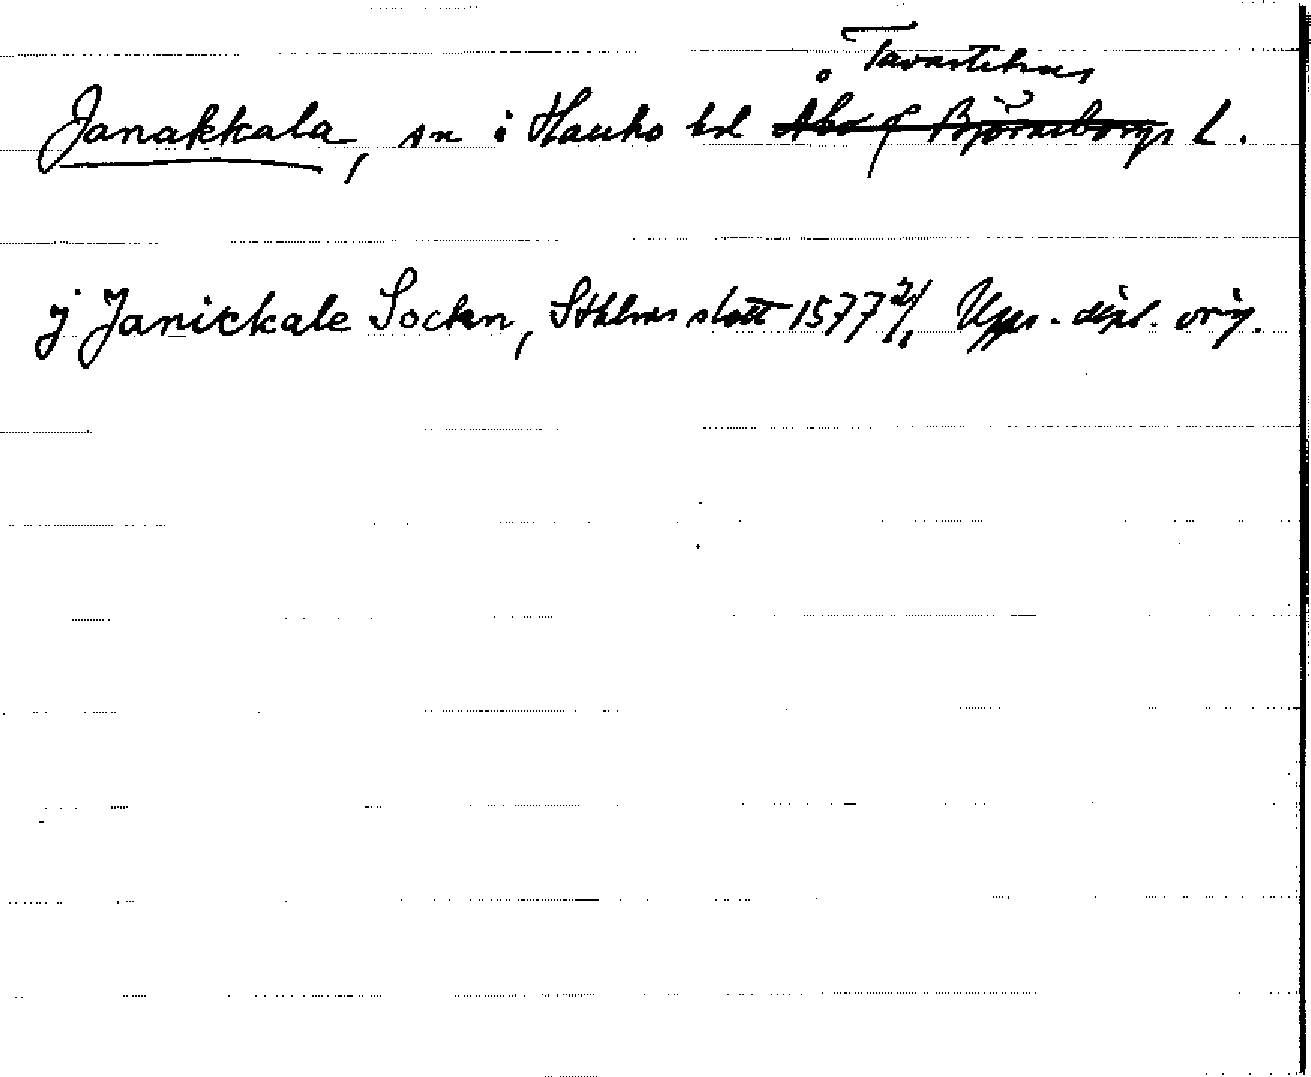 Tavastehus
Janakkala, sn i Hauho hd Åbo o Björneborgs L.
j Janickale Sockn, Sthlms slott 1577 2/1 Upps. dipl. orig.